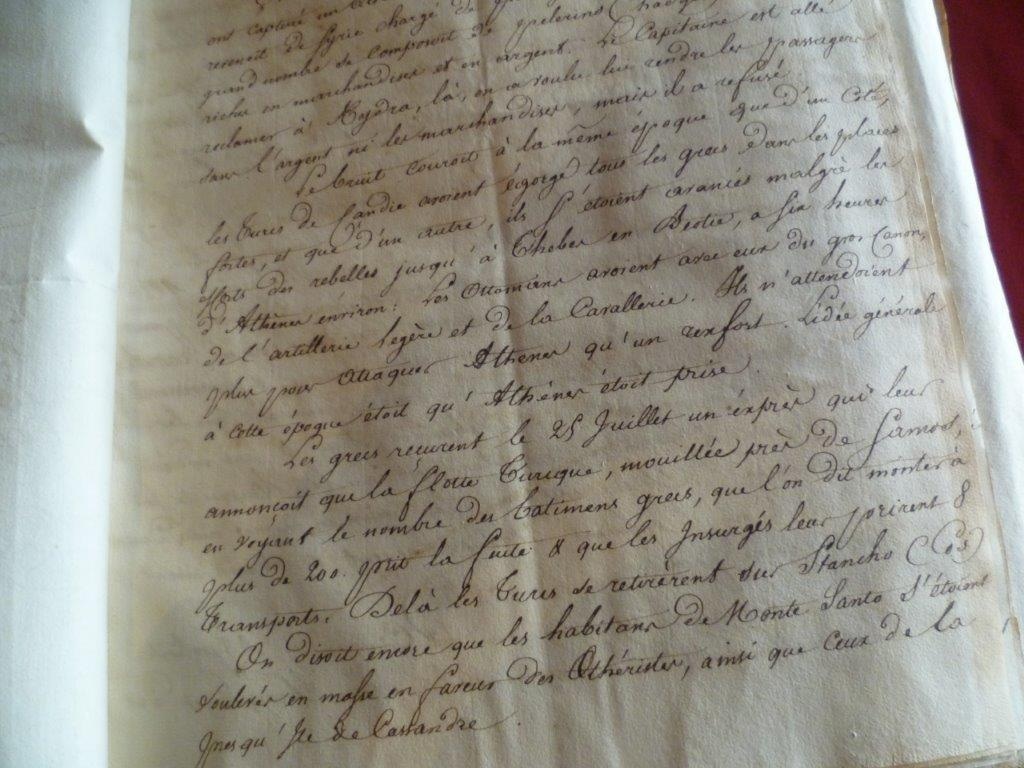 ont capturé un
revenoit de Syrie chargé de
grand nombre se composoit de pelerins
riches en marchandises et en argent. Le Capitaine est allé
reclamer à Hydra, là, on a voulu lui rendre les passagers
sans l'argent ni les marchandises, mais il a refusé.
Le bruit couroit à la même époque que d'un coté,
les Turcs de Candie avoient égorgé tous les grecs dans les places
fortes, et que d'un autre, ils s'étoient avancés malgré les
efforts des rebelles jusqu'à Thebes en Beotie, a six heures
d'Athènes environ: Les Ottomans avoient avec eux du gros Canon,
de l'artillerie legère et de la Cavallerie. Ils n'attendoient
plus pour attaquer Athenes qu'un renfort. L'idée générale
à cette époque étoit qu'Athénes étoit prise.
Les grecs recurent le 25 Juillet un éxprès qui leur
annonçoit que la flotte Turcque, mouillée près de Samos,
en voyant le nombre des batimens grecs, que l'on dit monter à
plus de 200. prit la fuite & que les Insurgés leur prirent 8
Transports. Delà les Turcs se retirèrent sur Stancho (Cos)
On disoit encore que les habitans de Monte Santo s'étoient
soulevés en masse en faveur des Ethéristes, ainsi que ceux de la
Presqu'Ile de Cassandre.